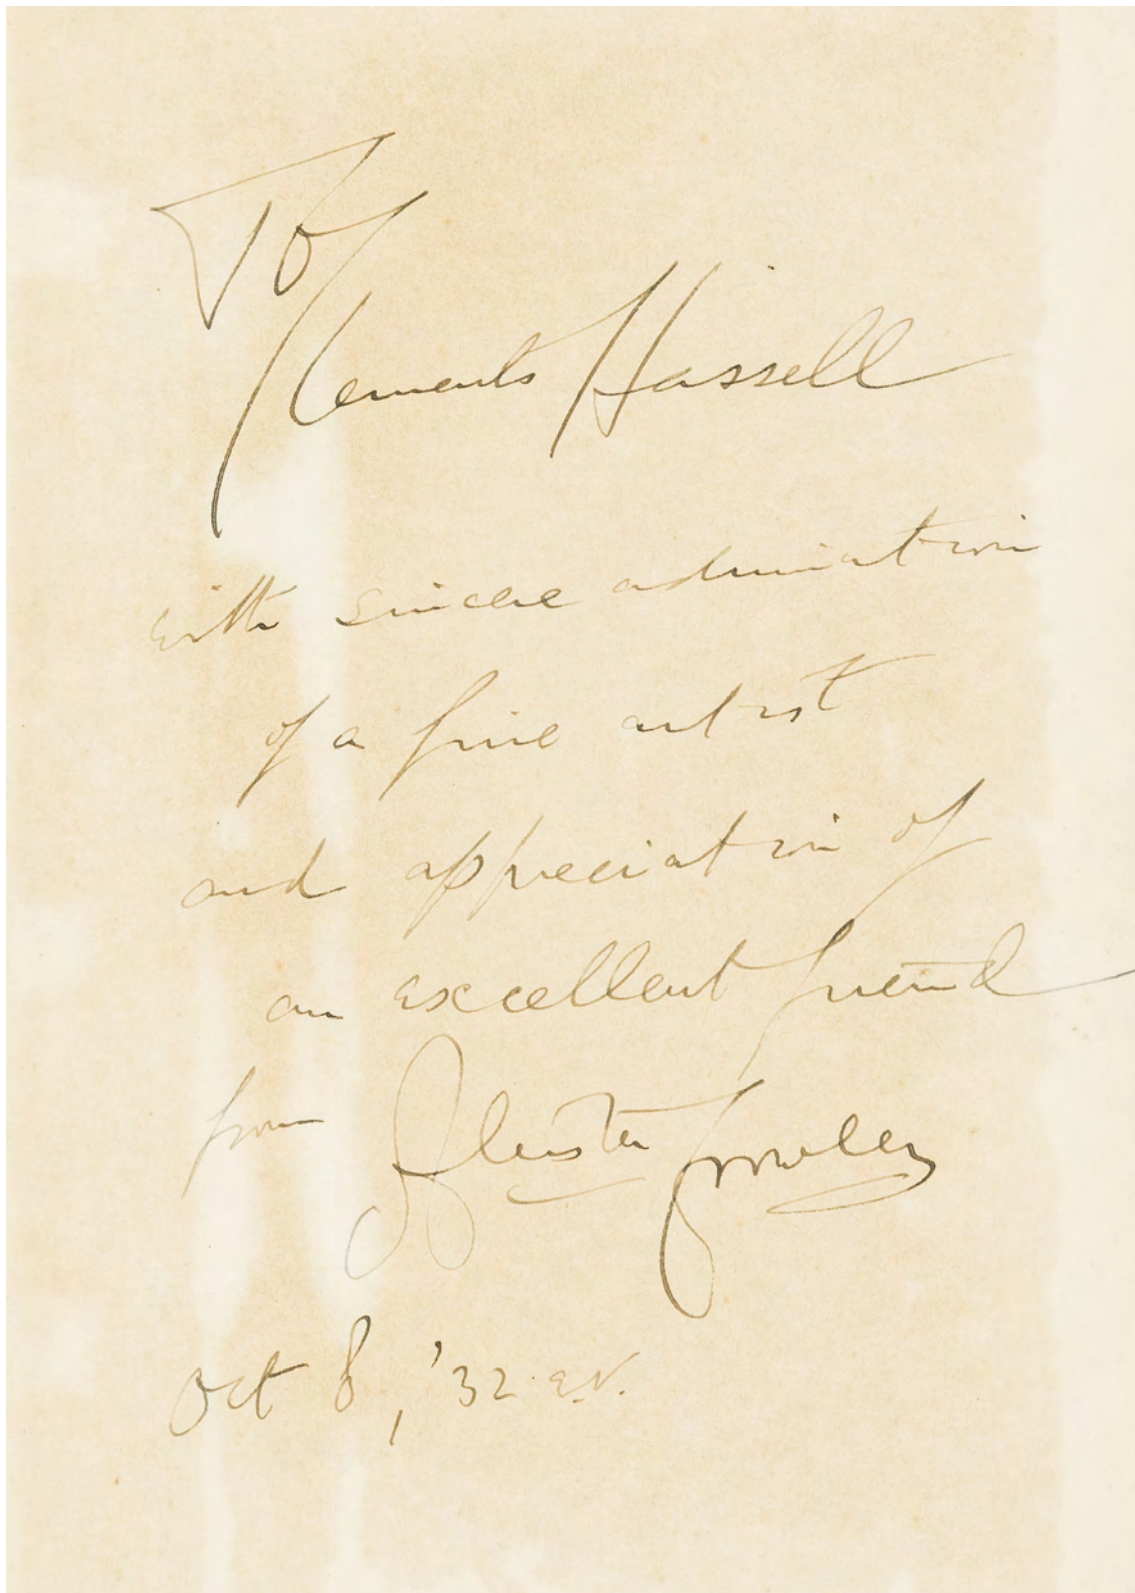 To
Clements Hassell
with sincere admiration
of a fine artist
and appreciation of
an excellent friend
from Aleister Crowley
Oct 8, '32 e.v.